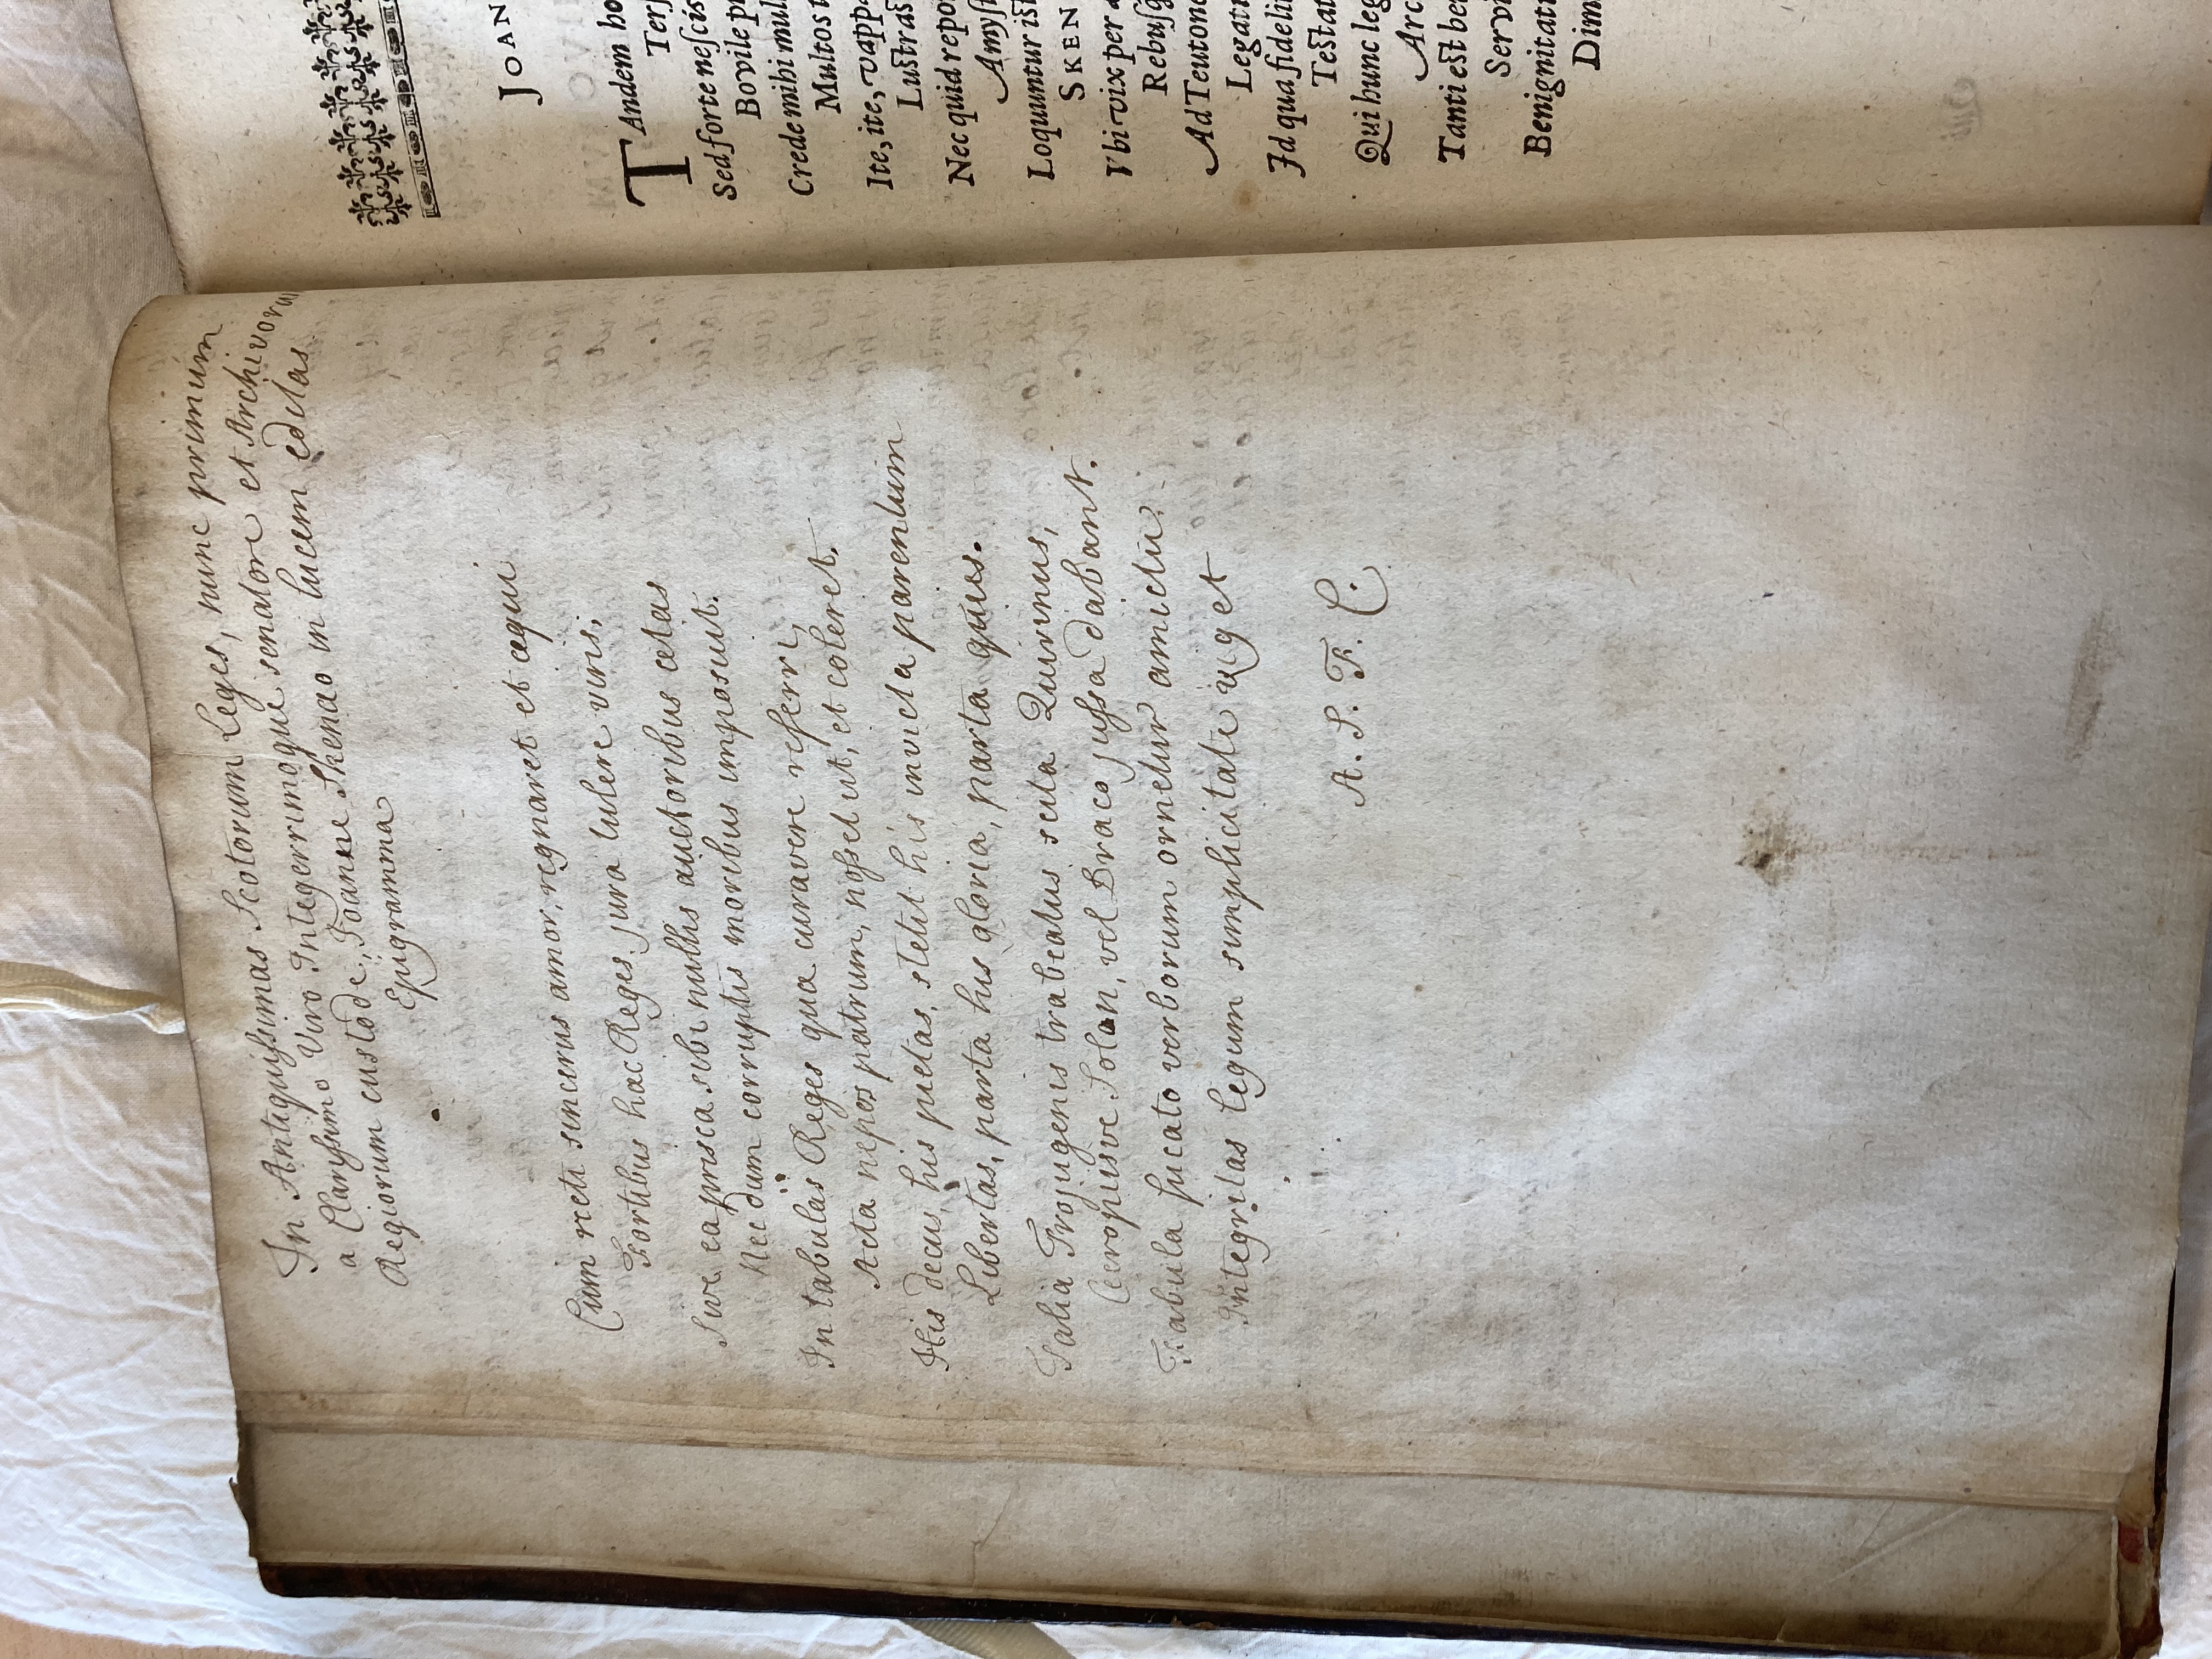 In Antiquissimas Scotorum Leges, nunc primum
a Clarissimo Viro Integerrimoque senatore et Archivorum
Regiorum custode, Joanne Skenao in lucem editas
Epigramma
Cum recti sincerus amor, regnaret et æqui
Fortibus hac Reges jura tulere viris;
Sive ea prisca sibi nullis auctoribus ætas
Nec dum corruptis moribus imposuit.
In tabulas Reges qua curavere referri,
Acta nepos patrum, nosset ut, et coleret.
His decus, his pietas, stetit his invicta parentum
Libertas, parta his gloria, parta quies.
Talia Trojugenis trabeatus scita Quirinus,
Cecropiisve Solon, vel Draco jussa dabant.
Fabula fucato verborum ornetur amictu:
Integritas legum simplicitate viget
A. S. F. C.
JOAN
TAndem ho
Terſ
Sed forte neſcis
Bovile p
Crede mihi mul
Multos t
Ite, ite, vapp
Luſtraſ
Nec quid repo
Amyſt
Loquuntur iſt
SKEN
Vbi vix per
Rebuſq
Ad Teutono
Legati
Id qua fideli
Teſtat
Qui hunc leg
Arc
Tanti eſt be
Servi
Benignitati
Dim